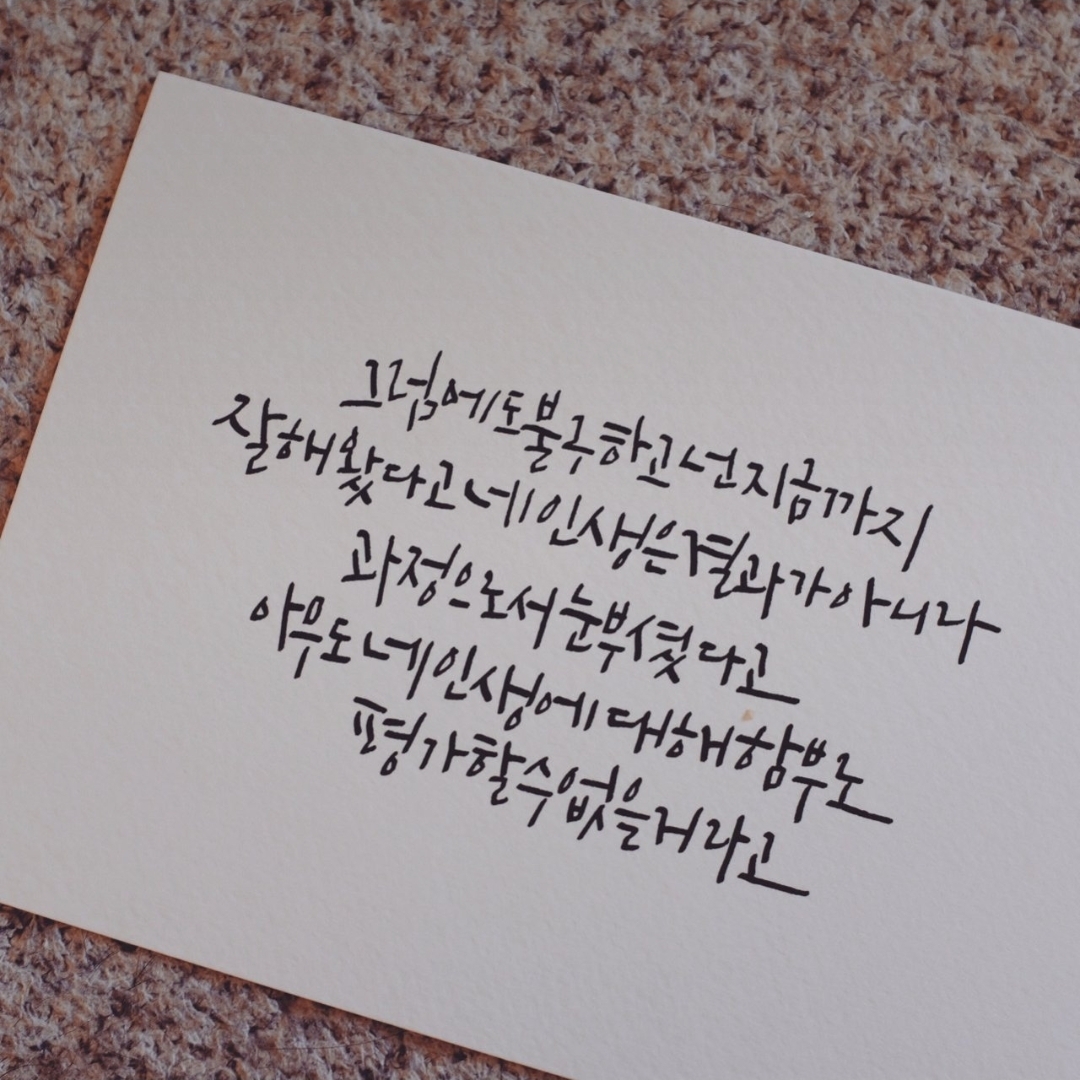 그럼에도 불구하고 넌 지금까지
잘해왔다고 네 인생은 결과가 아니라
과정으로서 눈부셨다고
아무도 네 인생에 대해 함부로
평가할 수 없을 거라고